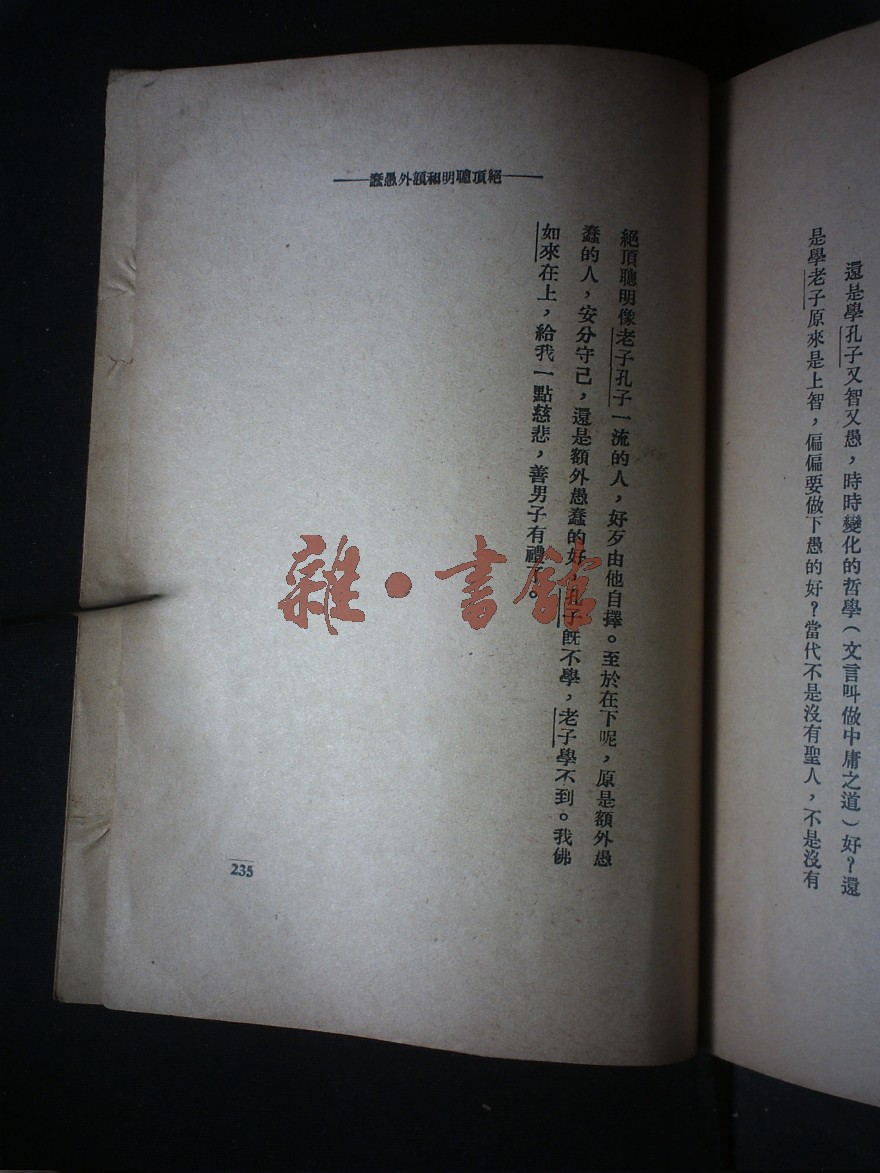 還是學孔子又智又愚，時時變化的哲學（文言叫做中庸之道）好？還
是學老子原來是上智，偏偏要做下愚的好？當代不是沒有聖人，不是沒有
絕頂聰明和額外愚蠢
絕頂聰明像老子孔子一流的人，好歹由他自擇。至於在下呢，原是額外愚
蠢的人，安分守己，還是額外愚蠢的好。孔子旣不學，老子學不到。我佛
如來在上，給我一點慈悲，善男子有禮了。
235
雜·書館